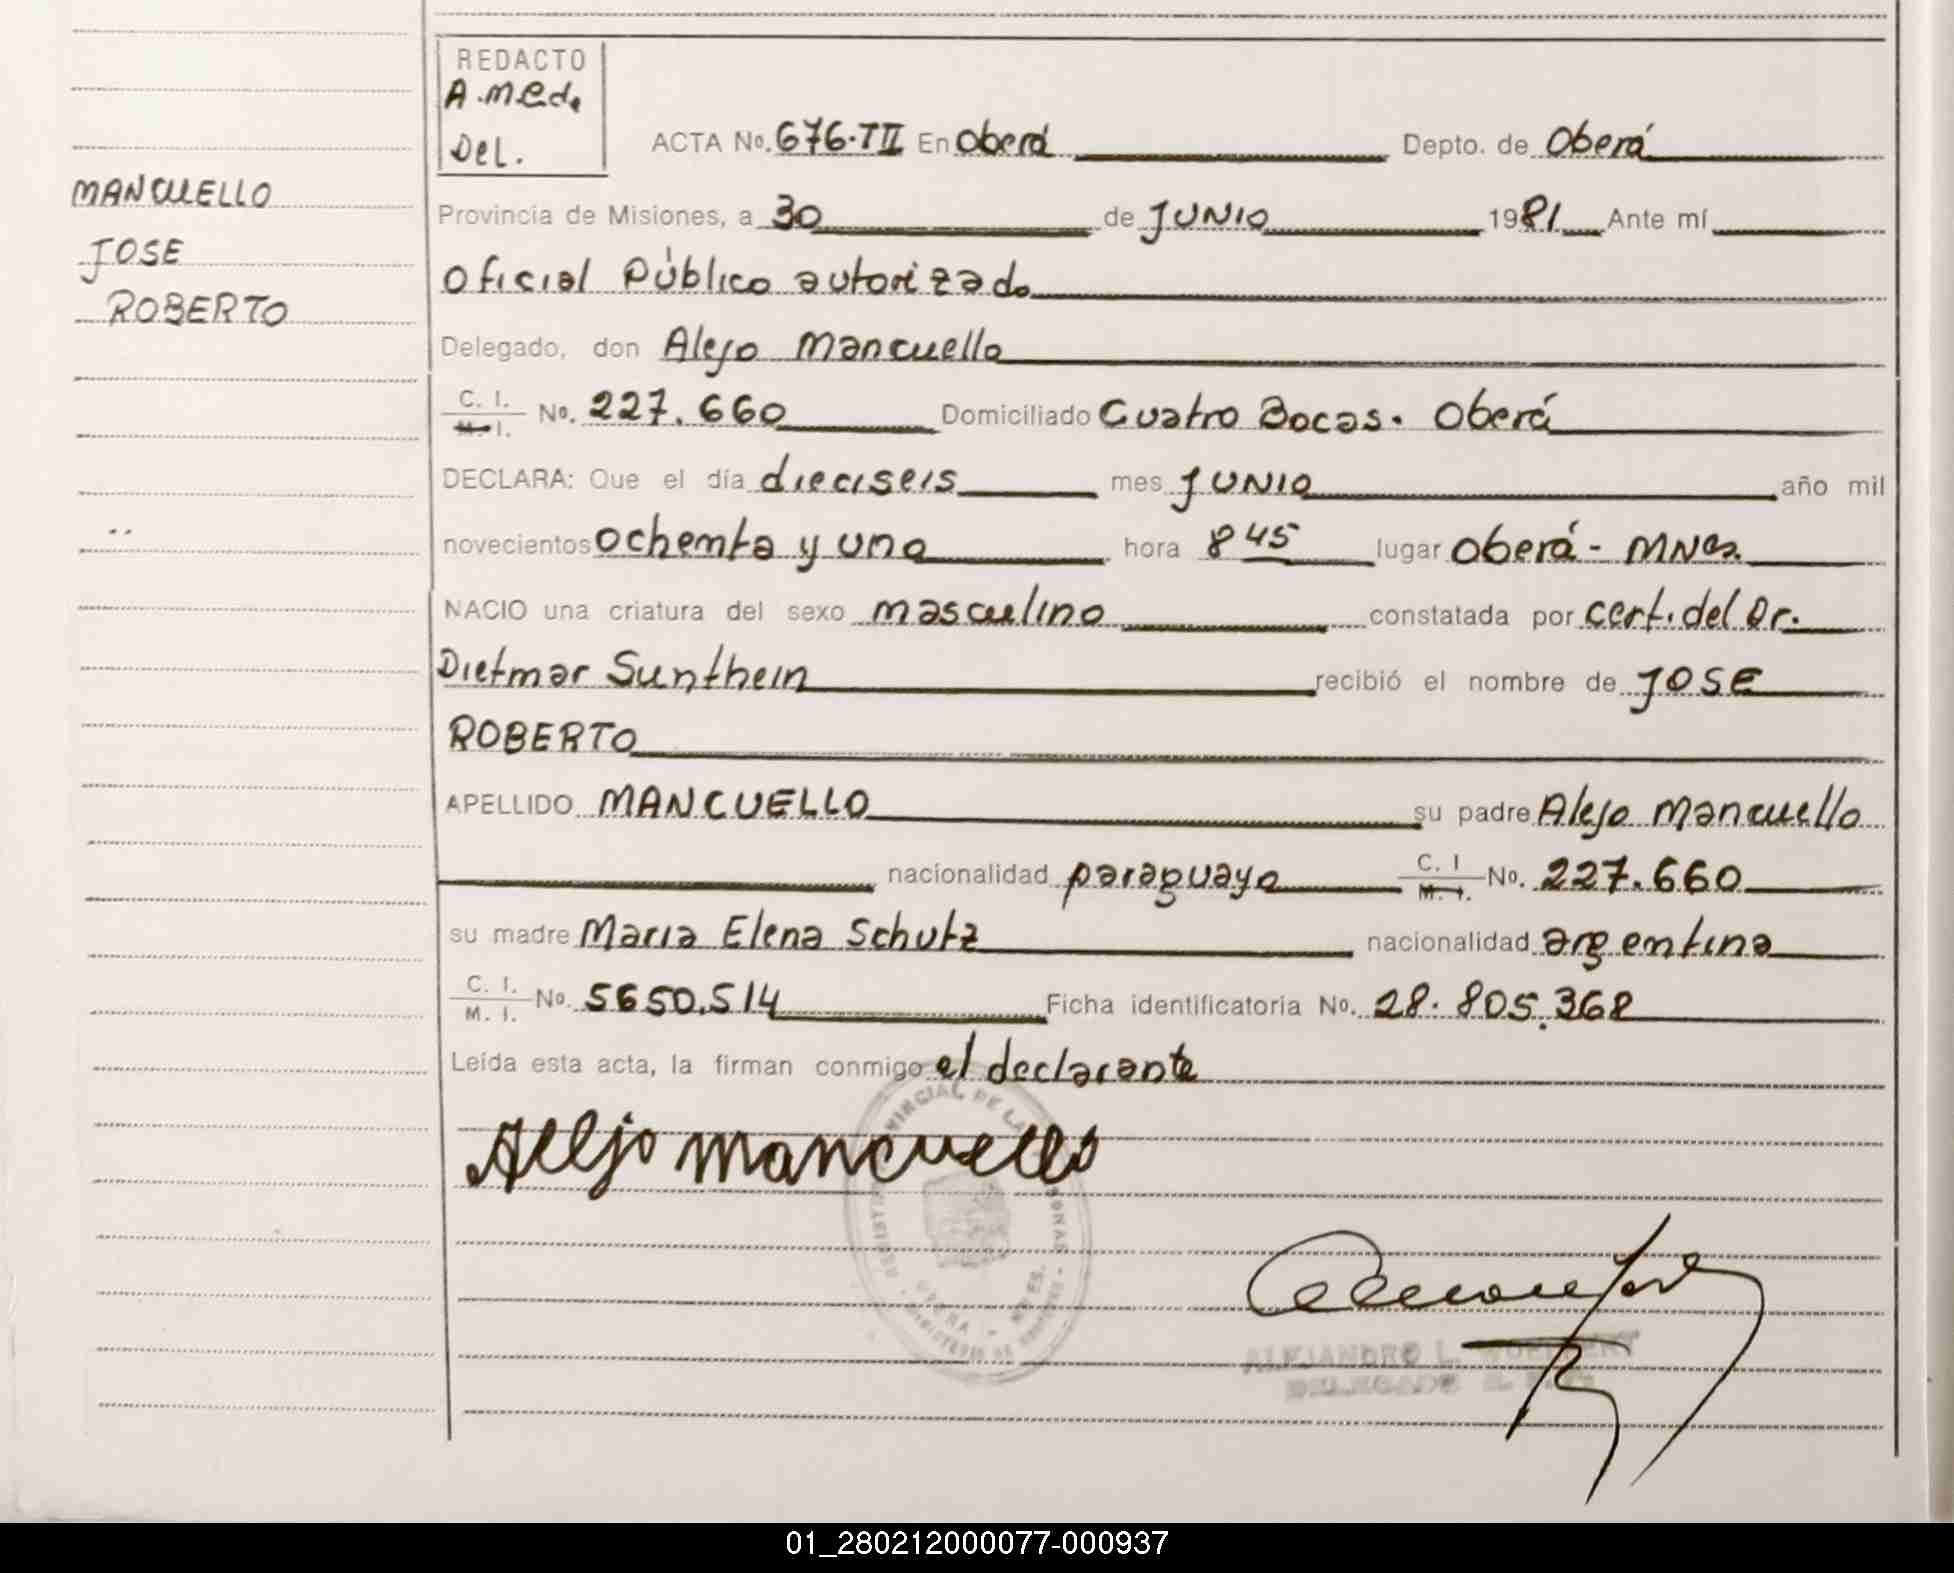 REDACTO
A.M.C.de
Del.
ACTA No. 676-TII En Oberá Depto. de Oberá
MANCUELLO
JOSE
ROBERTO
Provincia de Misiones, a 30 de JUNIO 1981 Ante mí
Oficial Público autorizado
Delegado, don Alejo Mancuello
C. I.
M. I. No. 227.660 Domiciliado Cuatro Bocas. Oberá
DECLARA: Que el día dieciseis mes JUNIO año mil
novecientos ochenta y uno hora 8 45 lugar Oberá - MNes.
NACIO una criatura del sexo masculino constatada por cert. del Dr.
Dietmar Sunthein recibió el nombre de JOSE
ROBERTO
APELLIDO MANCUELLO su padre Alejo Mancuello
nacionalidad paraguaya C. I
M. I. No. 227.660
su madre Maria Elena Schutz nacionalidad argentina
C. I.
M. I. No. 5650.514 Ficha identificatoria No. 28.805.368
Leída esta acta, la firman conmigo el declarante
Alejo Mancuello
ALEJANDRO L.
DELEGADO
01_280212000077-000937